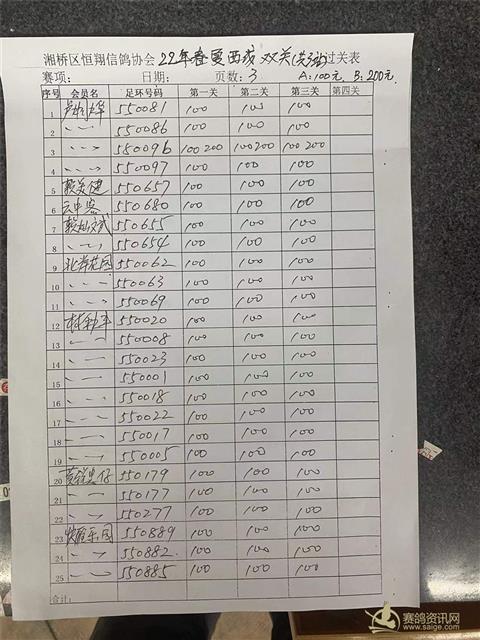 湘桥区恒翔信鸽协会22年春夏西戎双关(共3关)过关表
赛项: 日期: 页数:3 A:100元 B:200元
序号 会员名 足环号码 第一关 第二关 第三关 第四关
1 550081 100 100 100
2 〃 550086 100 100 100
3 〃 550096 100 200 100 200 100 200
4 〃 550097 100 100 100
5 550657 100 100 100
6 550680 100 100 100
7 550655 100 100 100
8 〃 550654 100 100 100
9 北岸花园 550062 100 100 100
10 〃 550063 100 100 100
11 〃 550069 100 100 100
12 550020 100 100 100
13 〃 550008 100 100 100
14 〃 550023 100 100 100
15 〃 550001 100 100 100
16 〃 550018 100 100 100
17 〃 550022 100 100 100
18 〃 550017 100 100 100
19 〃 550005 100 100 100
20 550179 100 100 100
21 〃 550177 100 100 100
22 〃 550277 100 100 100
23 550889 100 100 100
24 〃 550882 100 100 100
25 〃 550885 100 100 100
合计:
赛鸽资讯网
www.saige.com